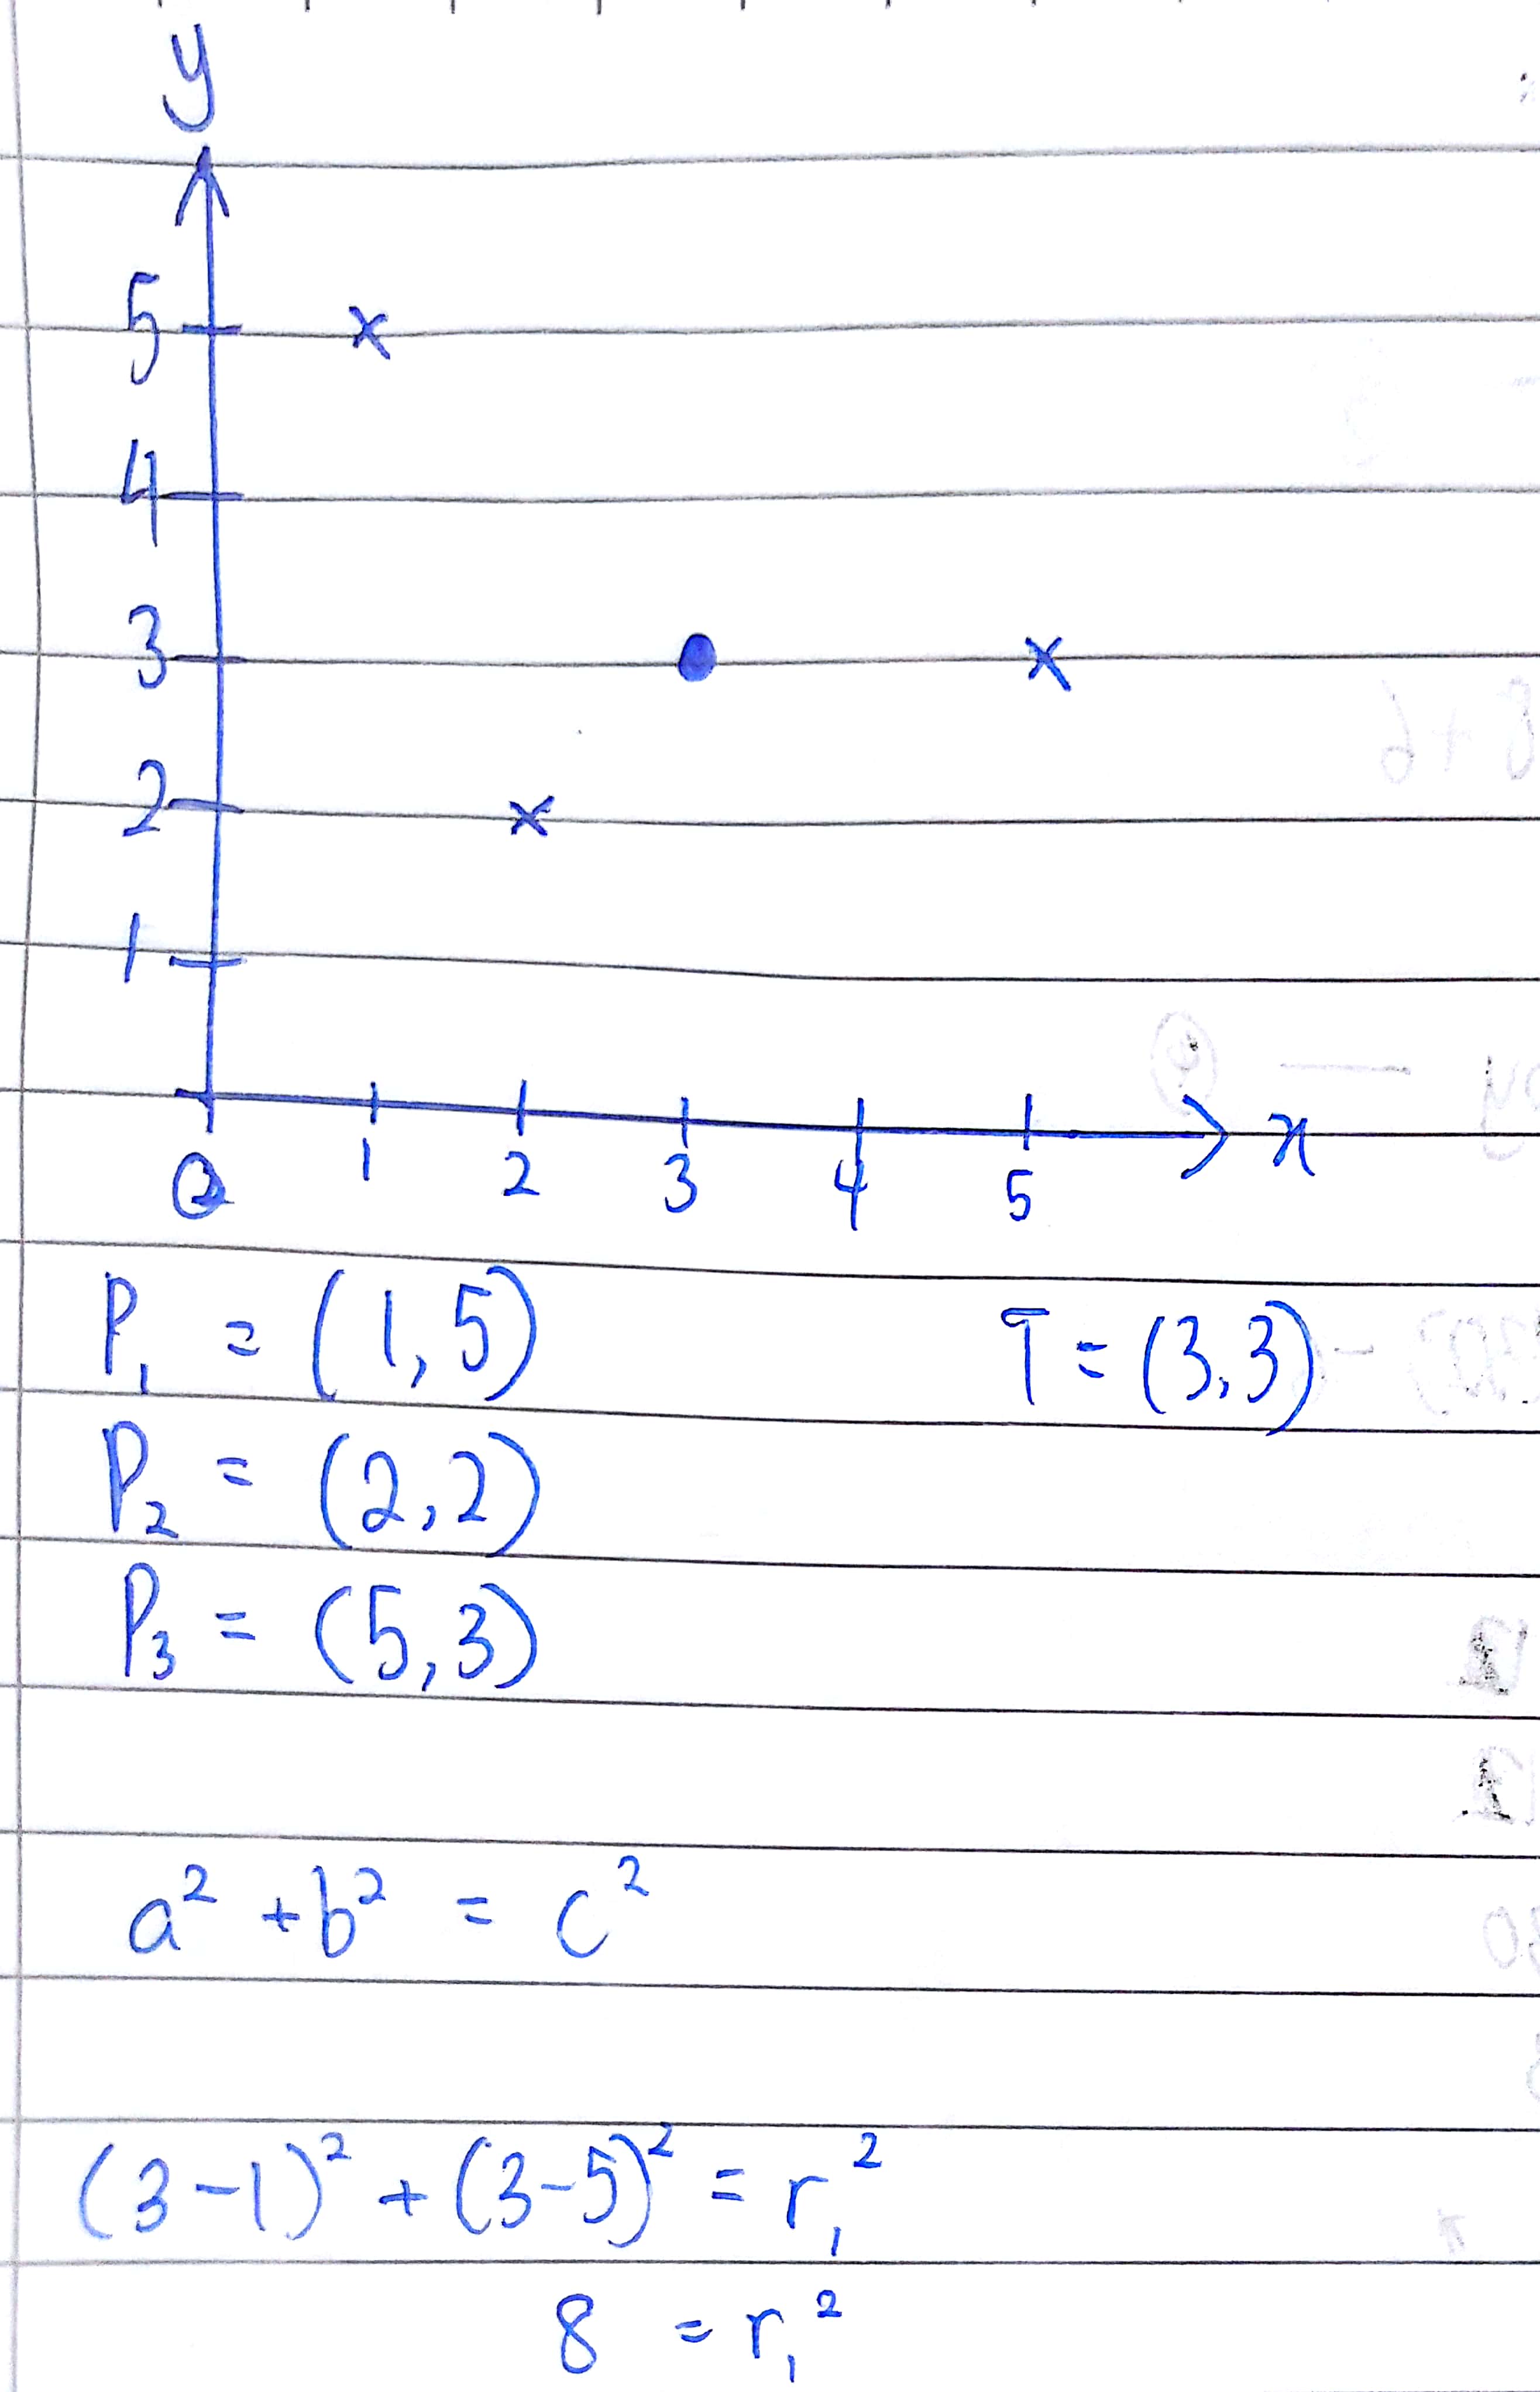 y
5
4
3
2
1
0 1 2 3 4 5 x
P₁ = (1,5) T = (3,3)
P₂ = (2,2)
P₃ = (5,3)
a² + b² = c²
(3-1)² + (3-5)² = r₁²
8 = r₁²